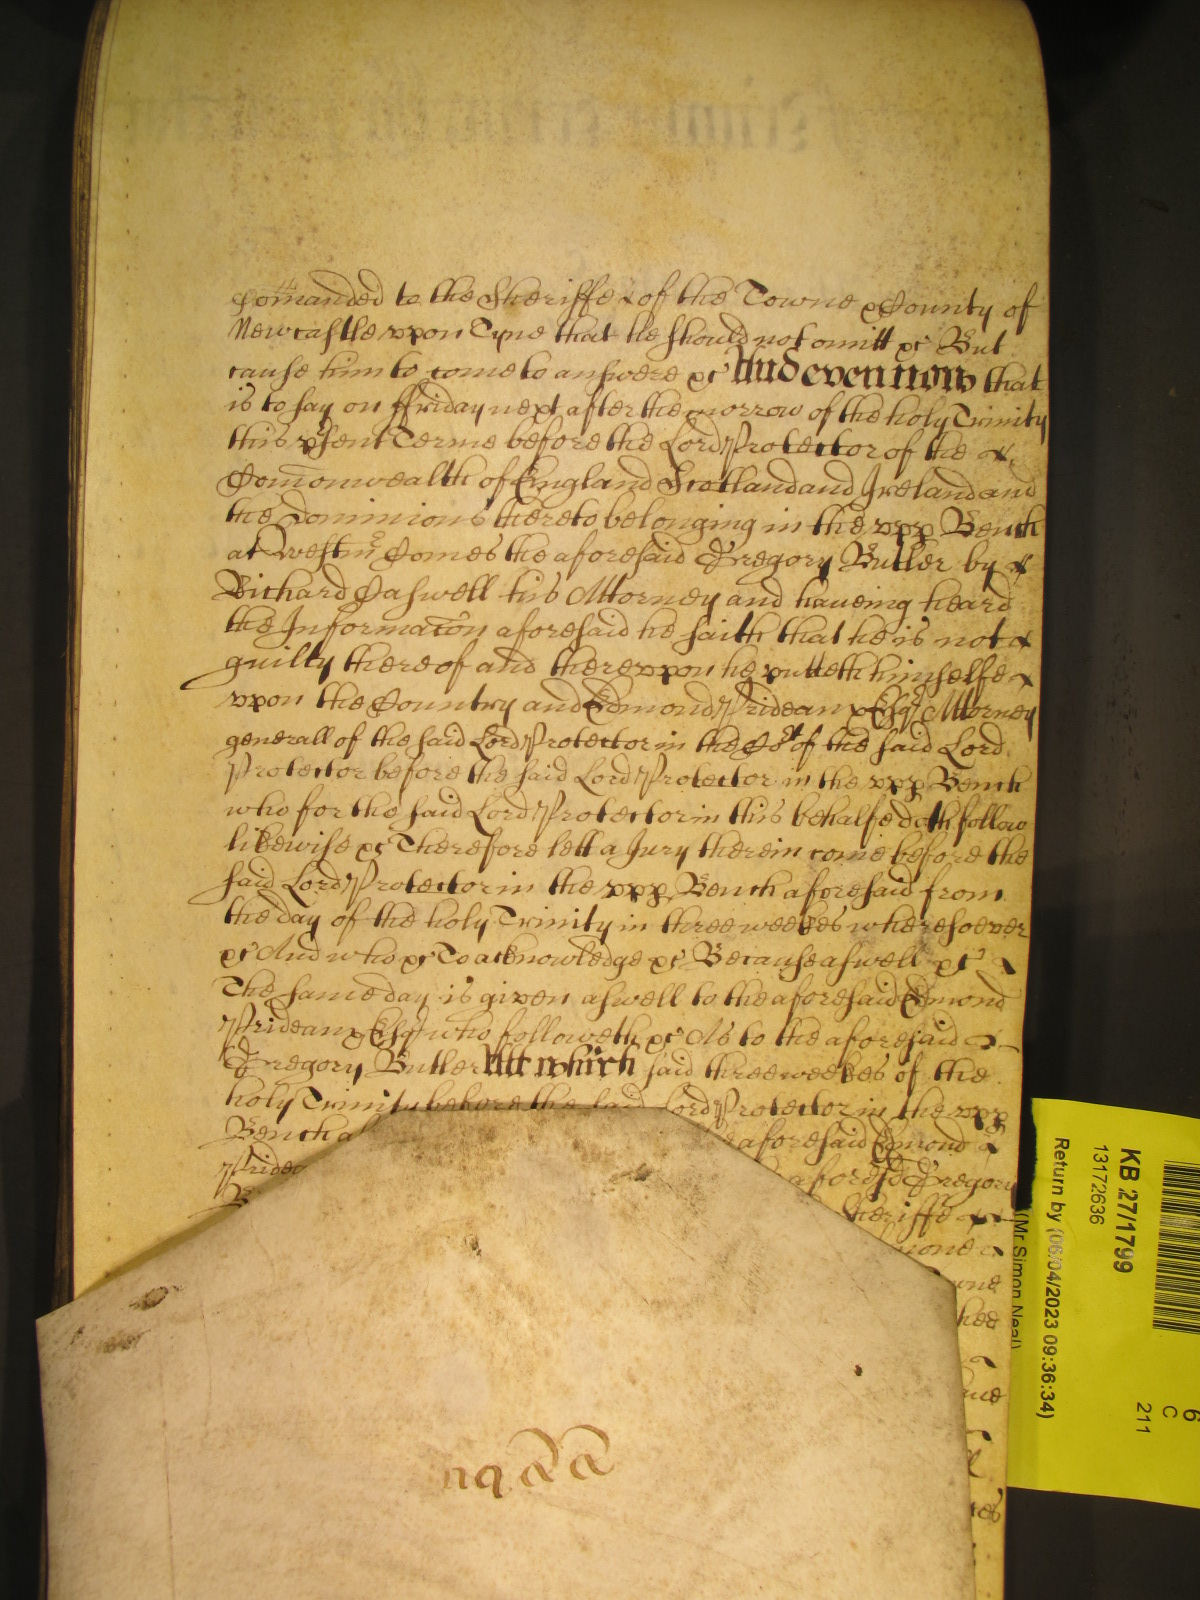 Comanded to the Sheriffe of the Towne & County of
Newcastle vpon Tyne that he should not omitt &c But
cause him to come to answere &c And even now that
is to say on ffriday next after the morrow of the holy Trinity
this psent Terme before the Lord Protector of the
Comonwealth of England Scotland and Ireland and
the Dominions thereto belonging in the vpp Bench
at Westmr Comes the aforesaid Gregory Butler by
Richard Caswell his Attorney and haueing heard
the Informacon aforesaid he saith that he is not
guilty thereof and therevpon he putteth himselfe
vpon the Country and Edmond Prideaux Esqr Attorney
generall of the said Lord Protector in the Cort of the said Lord
Protector before the said Lord Protector in the vpp Bench
who for the said Lord Protector in this behalfe doth follow
likewise &c Therefore lett a Jury therein come before the
said Lord Protector in the vpp Bench aforesaid from
the day of the holy Trinity in three weekes wheresoever
&c And who &c To acknowledge &c Because aswell &c
The same day is given aswell to the aforesaid Edmond
Prideaux Esqr who followeth &c As to the aforesaid
Gregory Butler Att which said three weekes of the
holy Trinity before the said Lord Protector in the vpp
Bench aforesaid Edmond
aforesd Gregory
Sheriffe
KB 27/1799
13172636
Return by (06/04/2023 09:36:34)
(Mr Simon Neal)
6
C
211